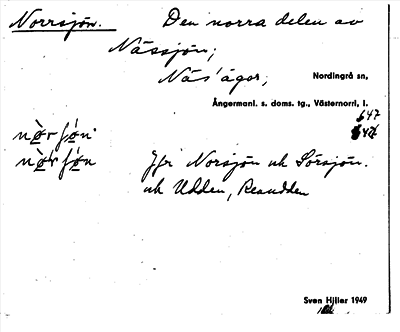 Norrsjön. Den norra delen av
Nässjön;
Näs'ägor; Nordingrå sn,
Ångermanl. s. doms. tg., Västernorrl. l.
647
Jfr Norsjön och Sörsjön.
och Udden,
Sven Hjller 1949